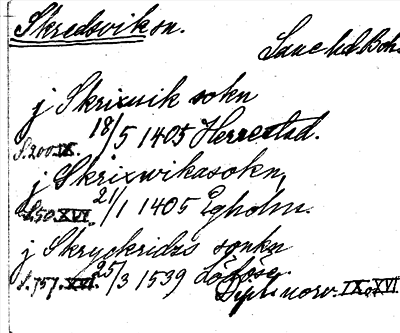 Skredsvik sn.
Lane hd. Boh.
j Skrixwik sokn
S. 200. IX. 18/5 1405 Herrestad.
j Skrixwikasokn,
S. 50. XVI. 21/1 1405 Egholm.
j Skryckridzs sonkn
S. 757. XVI. 25/3 1539 Lödöse.
Dipl. norv. IX. XVI